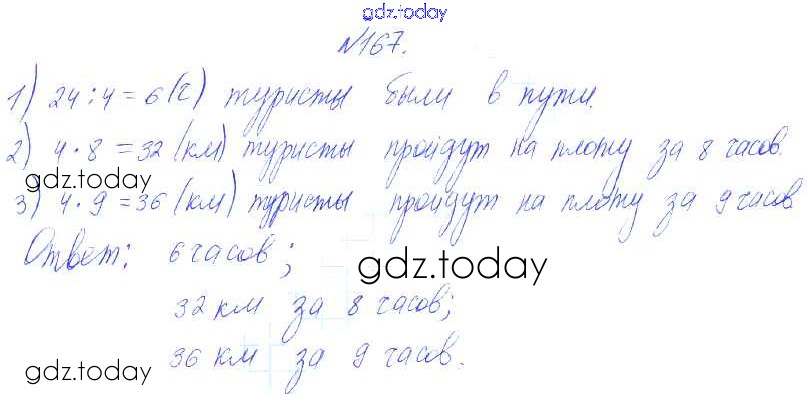 gdz.today
№167.
1) 24:4=6(ч) туристы были в пути.
2) 4·8=32(км) туристы пройдут на плоту за 8 часов.
gdz.today
3) 4·9=36(км) туристы пройдут на плоту за 9 часов
Ответ: 6 часов;
gdz.today
32 км за 8 часов;
36 км за 9 часов.
gdz.today